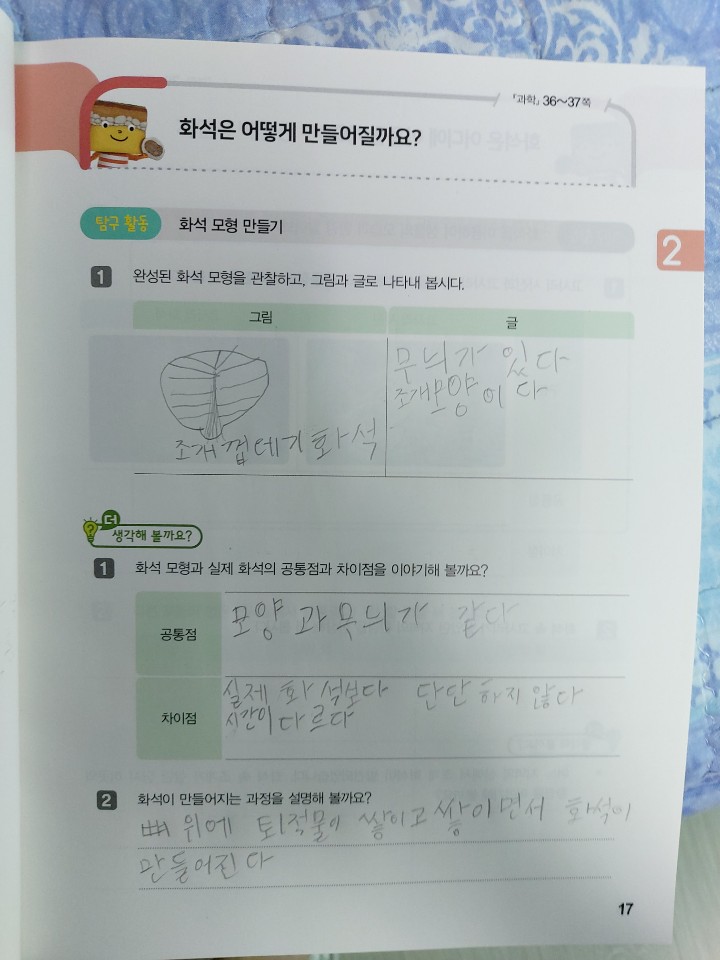 「과학」 36~37쪽
화석은 어떻게 만들어질까요?
탐구 활동 화석 모형 만들기
2
1 완성된 화석 모형을 관찰하고, 그림과 글로 나타내 봅시다.
그림 글
무늬가 있다
조개모양이다
조개껍데기화석
더
생각해 볼까요?
1 화석 모형과 실제 화석의 공통점과 차이점을 이야기해 볼까요?
공통점 모양과 무늬가 같다
차이점 실제 화석보다 단단하지 않다
시간이 다르다
2 화석이 만들어지는 과정을 설명해 볼까요?
뼈 위에 퇴적물이 쌓이고 쌓이면서 화석이
만들어진다
17